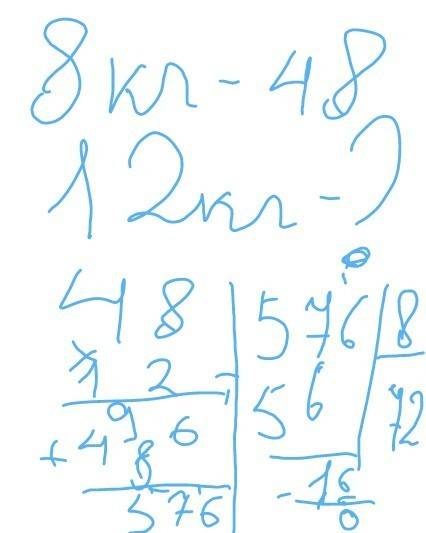 8кг - 48
12кг - ?
48
x12
96
+48
576
576 8
- 56 72
- 16
0